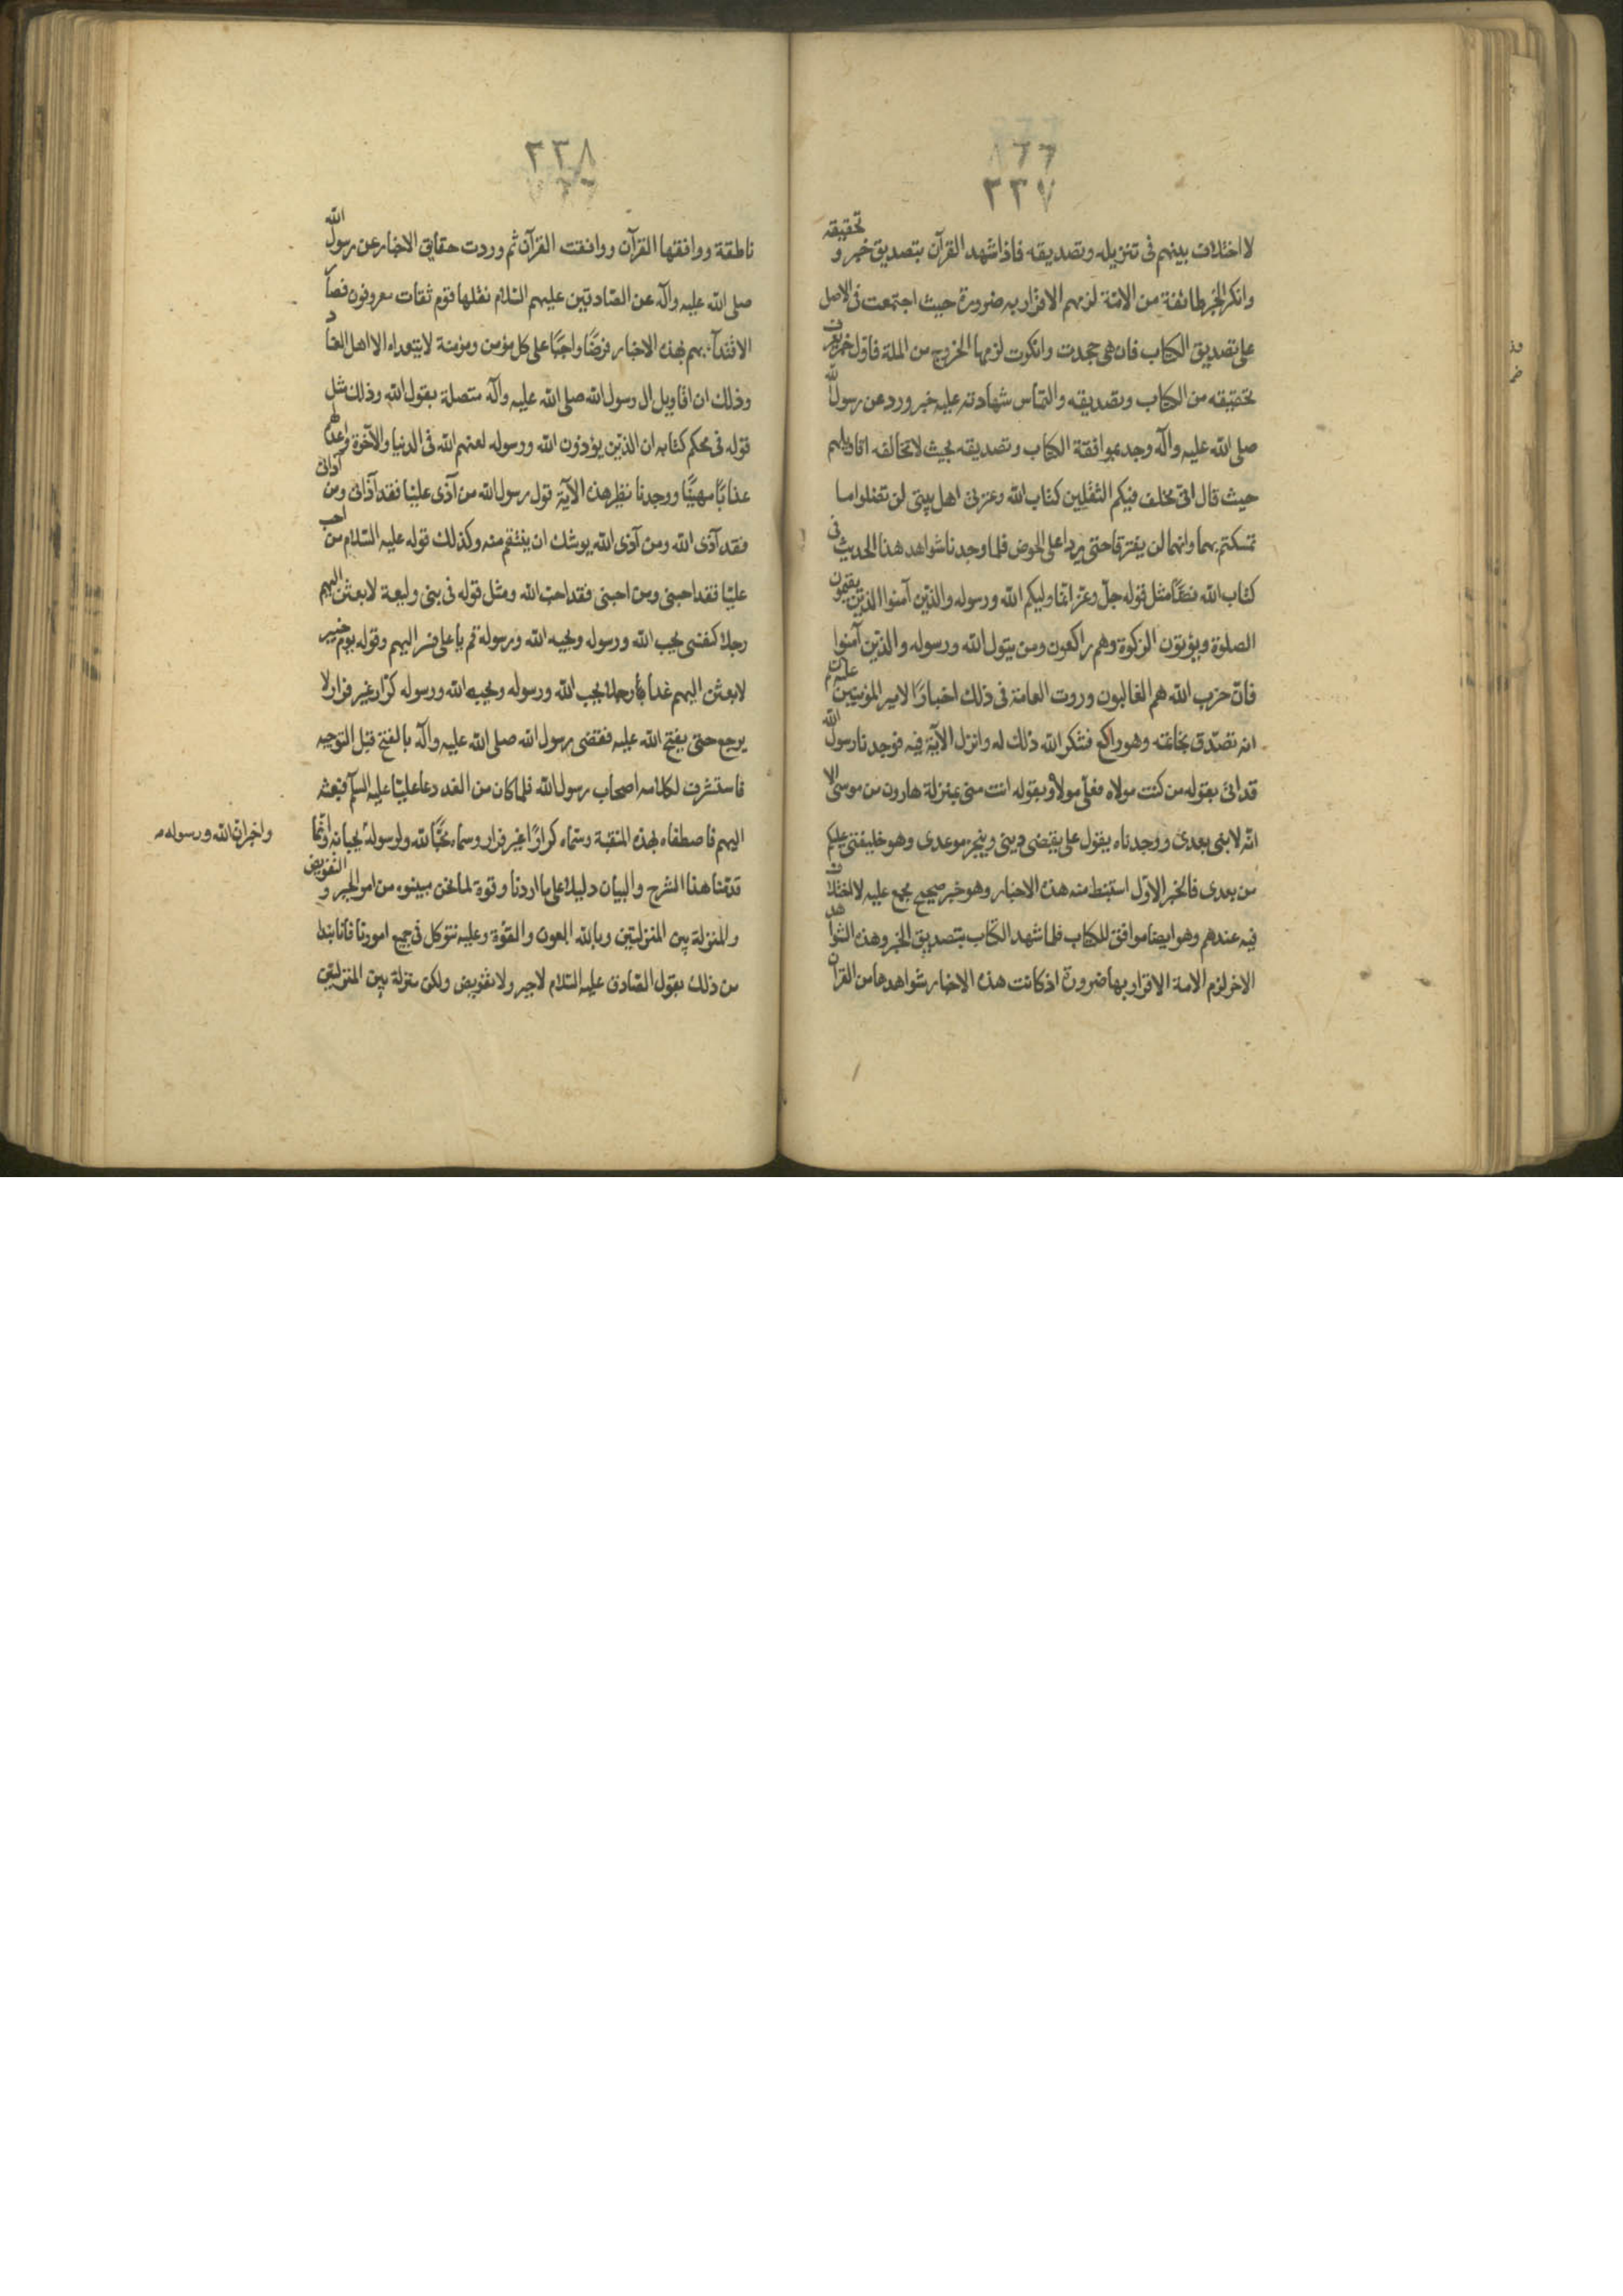 ٢٣٧
لا اختلاف بينهم فى تنزيله وتصديقه فاذا شهد القرآن بتصديق خبر و تحقيقه
وانكر الخبر طائفة من الامّة لزمهم الاقرار به ضرورة حيث اجتمعت فى الاصل
على تصديق الكتاب فان هى جحدت وانكرت لزمها الخروج من الملة فاوّل خبر يعرف
تحقيقه من الكتاب وتصديقه والتماس شهادته عليه خبر ورد عن رسول الله
صلى الله عليه وآله وجد بموافقة الكتاب وتصديقه بحيث لا تخالفه اقاويلهم
حيث قال انّى مخلف فيكم الثقلين كتاب الله وعترتى اهل بيتى لن تضلوا ما
تمسكتم بهما وانهما لن يفترقا حتى يردا على الحوض فلما وجدنا شواهد هذا الحديث فى
كتاب الله نصّاً مثل قوله جلّ وعزّ انّما وليكم الله ورسوله والذين آمنوا الذين يقيمون
الصلوة ويؤتون الزكوة وهم راكعون ومن يتول الله ورسوله والذين آمنوا
فانّ حزب الله هم الغالبون وروت العامة فى ذلك اخبارًا لامير المؤمنين علیه م
انه تصدّق بخاتمه وهو راكع فشكر الله ذلك له وانزل الآية فيه فوجدنا رسول الله
قد اتى بقوله من كنت مولاه فعلى مولاه وبقوله انت منى بمنزلة هارون من موسى الا
انّه لا نبى بعدى ووجدناه يقول على يقضى دينى وينجز موعدى وهو خليفتى عليكم
من بعدى فالخبر الاوّل استنبط منه هذه الاخبار وهو خبر صحيح مجمع عليه لا اختلاف
فيه عندهم وهو ايضا موافق للكتاب فلما شهد الكتاب بتصديق الخبر وهذه الشواهد
الاخر لزم الامة الاقرار بها ضرورة اذ كانت هذه الاخبار شواهدها من القرآن
٢٣٨
ناطقة ووافقها القرآن ووافقت القرآن ثم وردت حقايق الاخبار عن رسول الله
صلى الله عليه وآله عن الصّادقين عليهم السّلام نقلها قوم ثقات معروفون فصار
الاقتدآء بهم بهذه الاخبار فرضًا واجبًا على كل مؤمن ومؤمنة لا يتعداه الا اهل العناد
وذلك ان اقاويل ال رسول الله صلى الله عليه وآله متصلة بقول الله وذلك مثل
قوله فى محكم كتابه ان الذين يؤذون الله ورسوله لعنهم الله فى الدنيا والآخرة واعد لهم
عذابًا مهينًا ووجدنا نظير هذه الآية قول رسول الله من آذى عليّا فقد آذانى ومن آذانى
فقد آذى الله ومن آذى الله يوشك ان ينتقم منه وكذلك قوله عليه السّلام من احب
عليّا فقد احبنى ومن احبنى فقد احبّ الله ومثل قوله فى بنى وليعة لابعثنّ اليهم
رجلا كنفسى يحب الله ورسوله ويحبه الله ورسوله قم يا على فسر اليهم وقوله يوم خيبر
لابعثن اليهم غداً رجلا يحب الله ورسوله ويحبه الله ورسوله كرّار غير فرار لا
يرجع حتى يفتح الله عليه فقضى رسول الله صلى الله عليه وآله بالفتح قبل التوجيه
فاستشرف لكلامه اصحاب رسول الله فلما كان من الغد دعا عليّا عليه السلم فبعثه
اليهم فاصطفاه بهذه المنقبة وسمّاه كرارًا غير فرار وسماه محبًّا لله ولرسوله يحبانه وانّما
واخبر ان الله ورسوله
قدّمنا هذا الشرح والبيان دليلا على ما اردنا وقوة لما نحن مبينوه من امر الجبر و التفويض
والمنزلة بين المنزلتين وبالله العون والقوّة وعليه نتوكل فى جميع امورنا فانا نبدا
من ذلك بقول الصّادق عليه السّلام لا جبر ولا تفويض ولكن منزلة بين المنزلتين